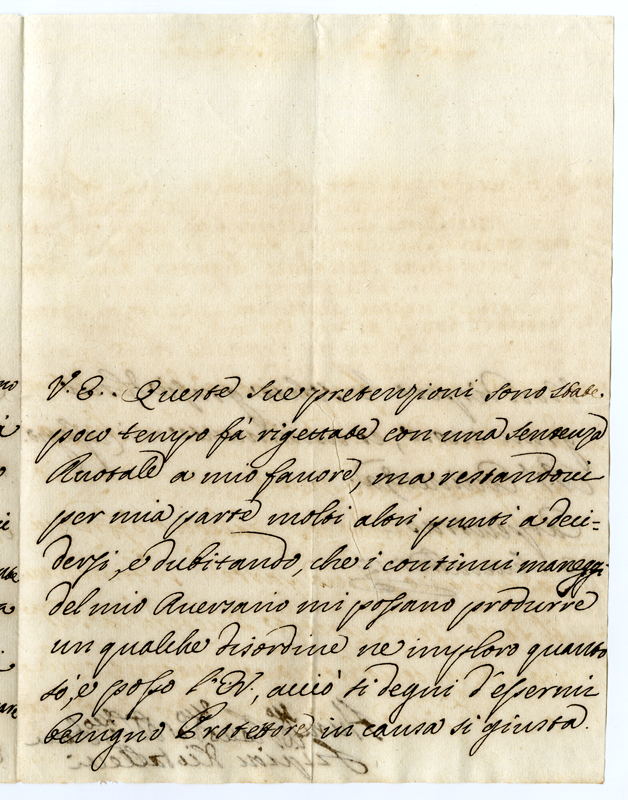 V. E. Queste sue pretenzioni sono state
poco tempo fà rigettate con una sentenza
Ruotale a mio favore, ma restandoci
per mia parte molti altri punti a deci=
dersi, e dubitando, che i continui maneggi
del mio Averzario mi possano produrre
un qualche disordine ne imploro quanto
sò, e posso l'E.V., acciò si degni d'essermi
benigno Protettore in causa si giusta.